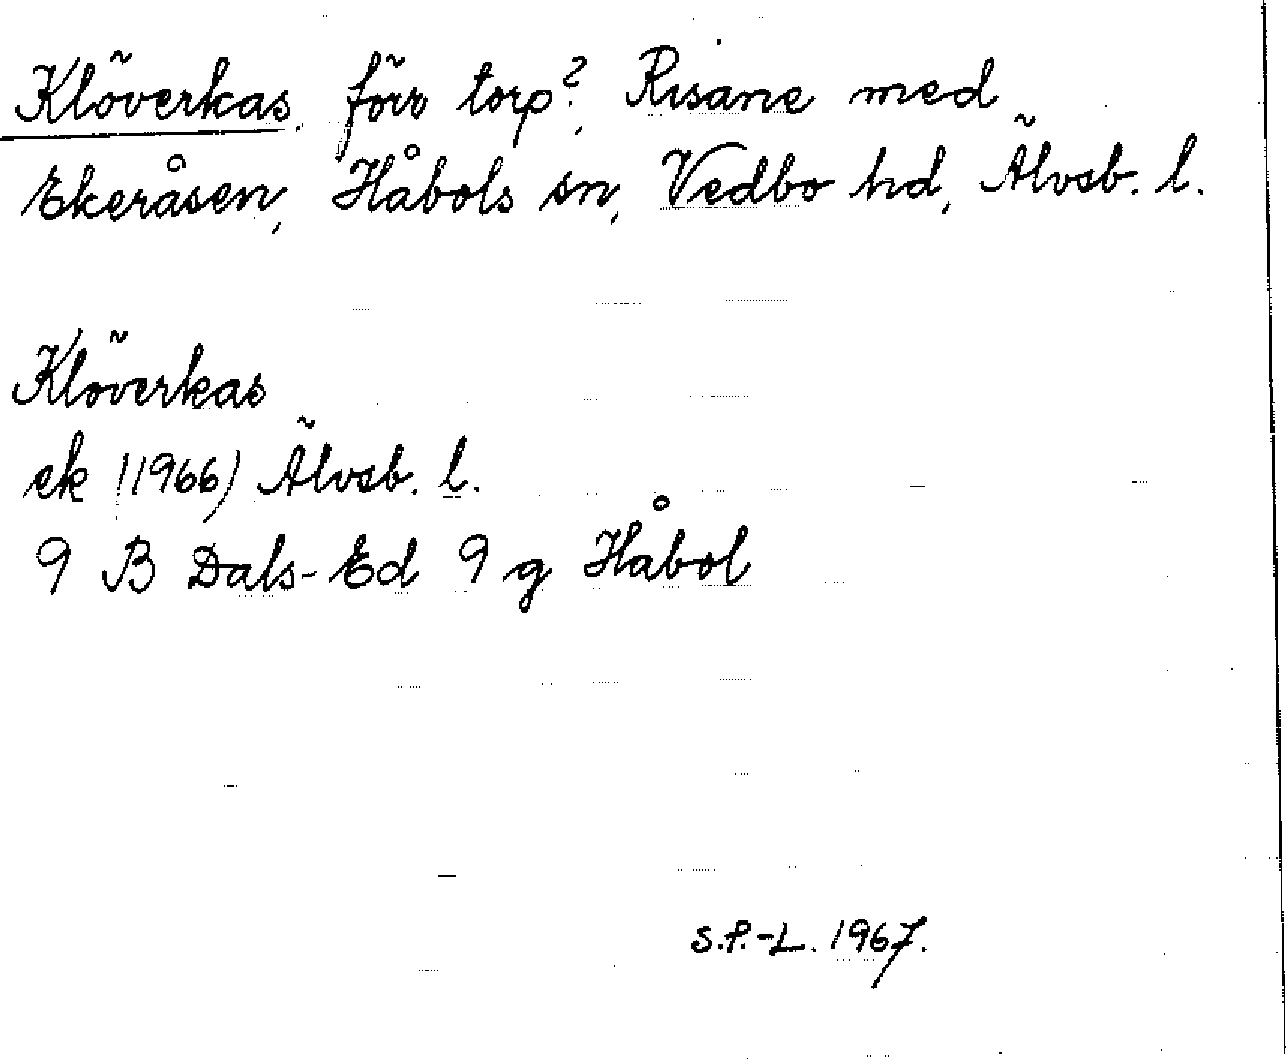 Klöverkas, förr torp?, Risane med
Ekeråsen, Håbols sn, Vedbo hd, Älvsb. l.
Klöverkas
ek (1966) Älvsb. l.
9 B Dals-Ed 9 g Håbol
S.P.-L. 1967.